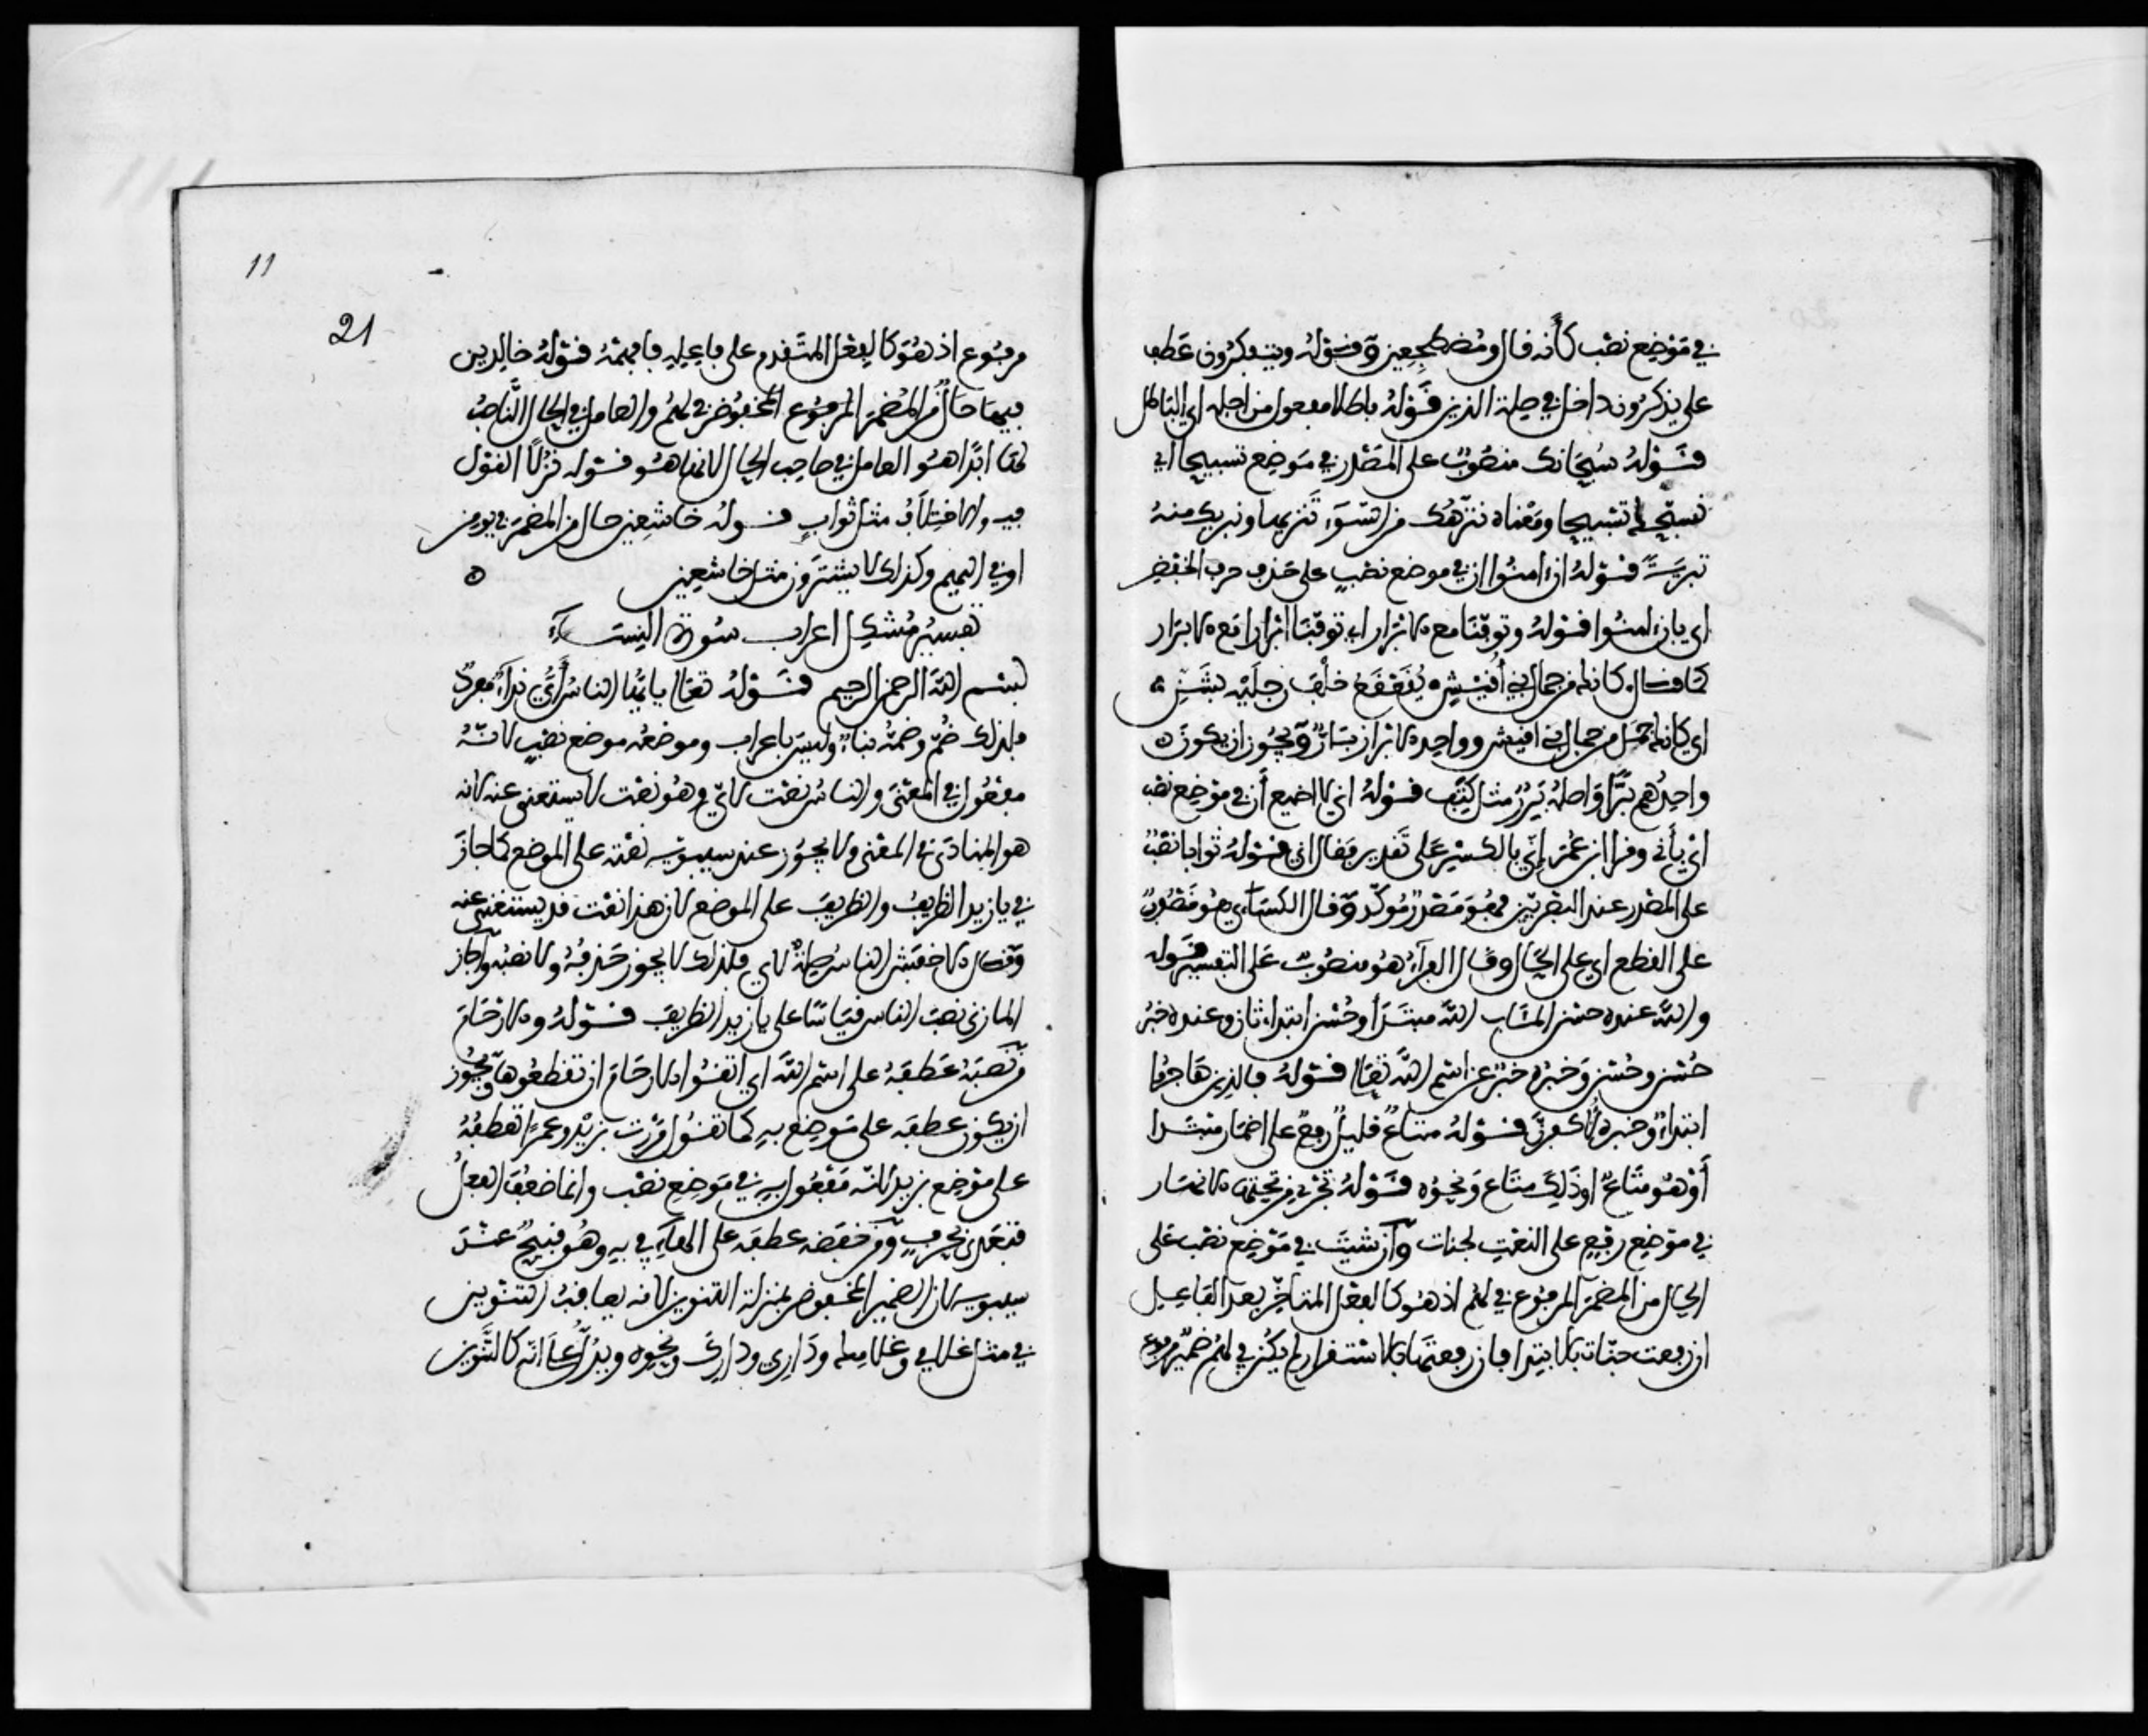 في موضع نصب كأنه قال ومضطجعين وقوله ويتفكرون عطف
على يذكرون داخل في صلة الذين قوله باطلا مفعول من اجله اي للباطل
قوله سبحانك منصوب على المصدر في موضع تسبيحا اي
نسبحك تسبيحا ومعناه ننزهك من السوء تنزيها ونبريك منه
تبرية قوله ان امنوا ان في موضع نصب على حذف حرف الخفض
اي بان امنوا قوله وتوفنا مع الابرار اي توفنا ابرارا مع الابرار
كما قال كانك من جمال بني أقيش يقعقع خلف رجليه بشن
اي كانك جمل من جمال بني اقيش وواحد الابرار بار ويجوز ان يكون
واحدهم برا واصله برر مثل كتف قوله اني لا اضيع أن في موضع نصب
اي بأني وقرا ابن عمر إني بالكسر على تقدير فقال اني قوله ثوابا نصب
على المصدر عند البصريين فهو مصدر مؤكد وقال الكسائي هو منصوب
على القطع اي على الحال وقال الفراء هو منصوب على التفسير قوله
والله عنده حسن المئاب الله مبتدأ وحسن ابتداء ثان وعنده خبر
حسن وحسن وخبره خبر عن اسم الله تعالى قوله فالذين هاجروا
ابتداء وخبره لأكفرن قوله متاع قليل رفع على اضمار مبتدا
أي هو متاع او ذلك متاع ونحوه قوله تجري من تحتها الانهار
في موضع رفع على النعت لجنات وان شئت في موضع نصب على
الحال من المضمر المرفوع في لهم اذ هو كالفعل المتأخر بعد الفاعل
ان رفعت جنات بالابتدا فان رفعتها بالاستقرار لم يكن في لهم ضمير مرفوع
11
21
مرفوع اذ هو كالفعل المتقدم على فاعله فافهمه قوله خالدين
فيها حال من المضمر المرفوع المخفوض في لهم والعامل في الحال الناصب
لها ابدا هو العامل في صاحب الحال لانها هو قوله نزلا القول
فيه والاختلاف مثل ثواب قوله خاشعين حال من المضمر في يومن
او في اليهم وكذلك لا يشترون مثل خاشعين
تفسير مشكل اعراب سورة النساء
بسم الله الرحمن الرحيم قوله تعالى يا أيها الناس أي نداء مفرد
فلذلك ضم وضمه بناء وليس باعراب وموضعه موضع نصب لانه
مفعول في المعنى والناس نعت لأي وهو نعت لا يستغنى عنه لانه
هو المنادى في المعنى ولا يجوز عند سيبويه نصبه على الموضع كما جاز
في يا زيد الظريف والظريف على الموضع لان هذا نعت قد يستغنى عنه
وقال الاخفش الناس صلة لاي فلذلك لا يجوز حذفه ولا نصبه واجاز
المازني نصب الناس قياسا على يا زيد الظريف قوله والارحام
من نصبه عطفه على اسم الله اي اتقوا الارحام ان تقطعوها ويجوز
ان يكون عطفه على موضع به كما تقول مررت بزيد وعمرا تعطفه
على موضع بزيد لانه مفعول به في موضع نصب وانما ضعف الفعل
فتعدى بحرف ومن خفضه عطفه على الهاء في به وهو قبيح عند
سيبويه لان الضمير المخفوض بمنزلة التنوين لانه يعاقب التنوين
في مثل غلامي وغلامك وداري ودارك ونحوه ويدل على انه كالتنوين